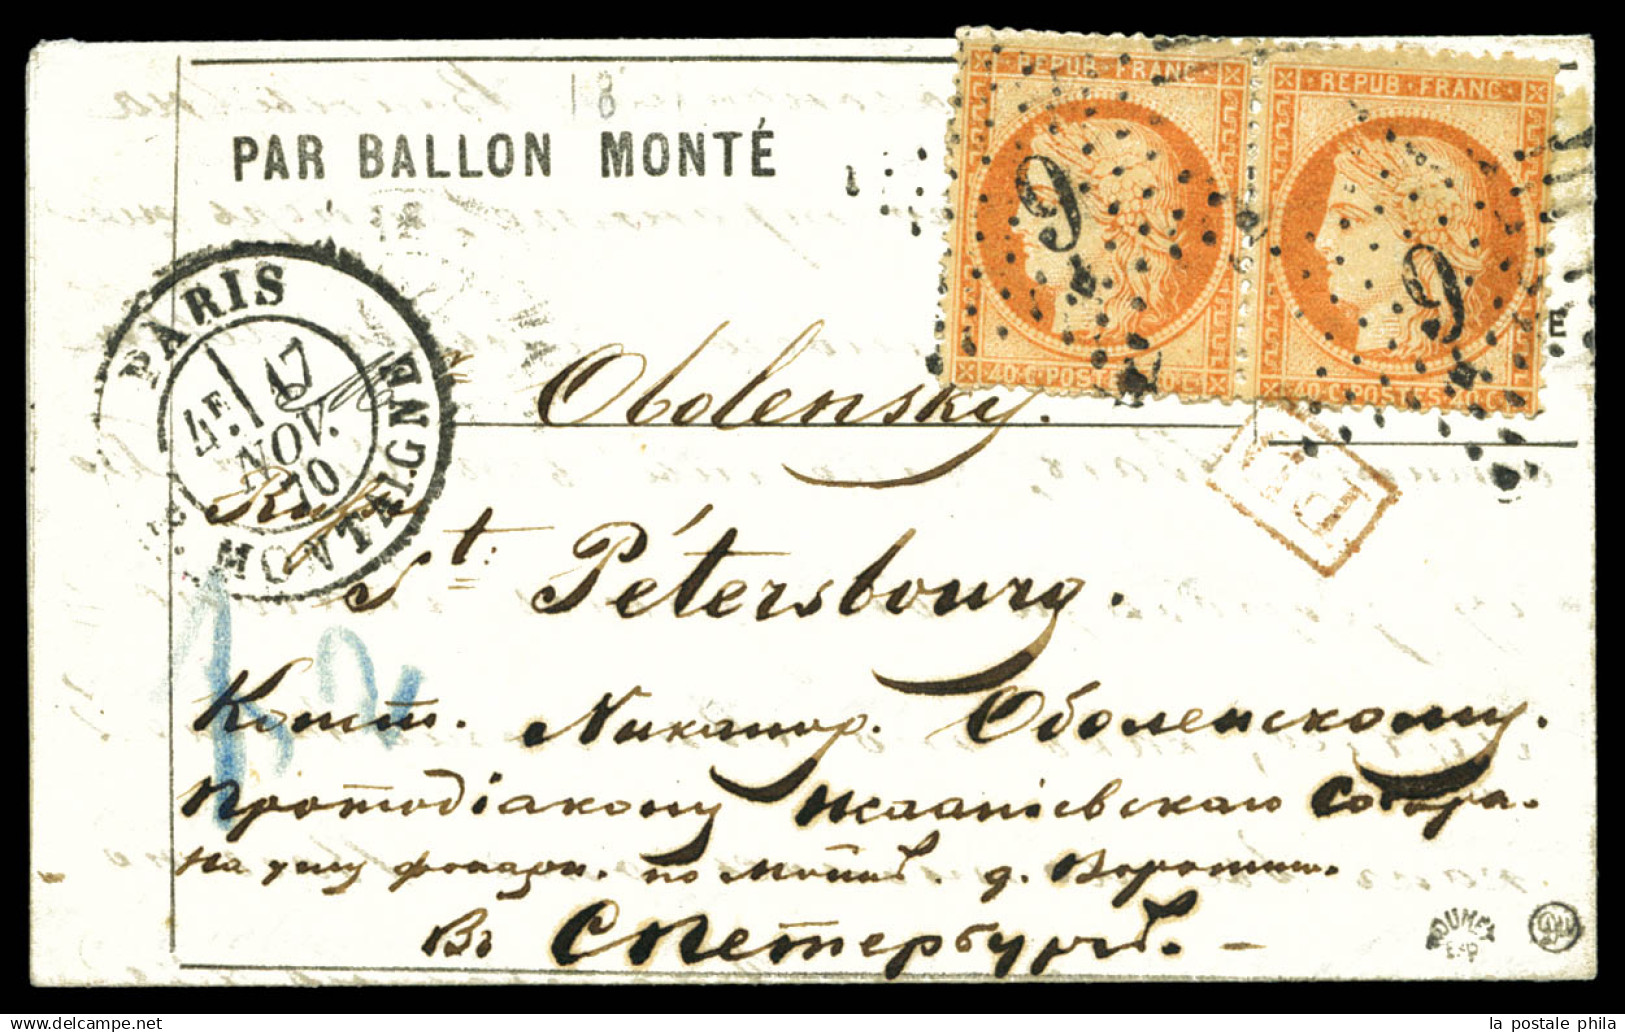 18
PAR BALLON MONTÉ
REPUB·FRANC
REPUB·FRANC
9
9
40·C·POSTES·40·C
40·C·POSTES·40·C
E
PARIS
4E 17
NOV.
70
MONTAIGNE
Obolensky.
PD
St: Pétersbourg.
Конст. Никанор. Оболенскому.
Протодіакону Исаакіевскаго Собора.
на углу фонарн. по д.
Въ СПетербургѣ. –
ROUMET
EXP
la postale phila